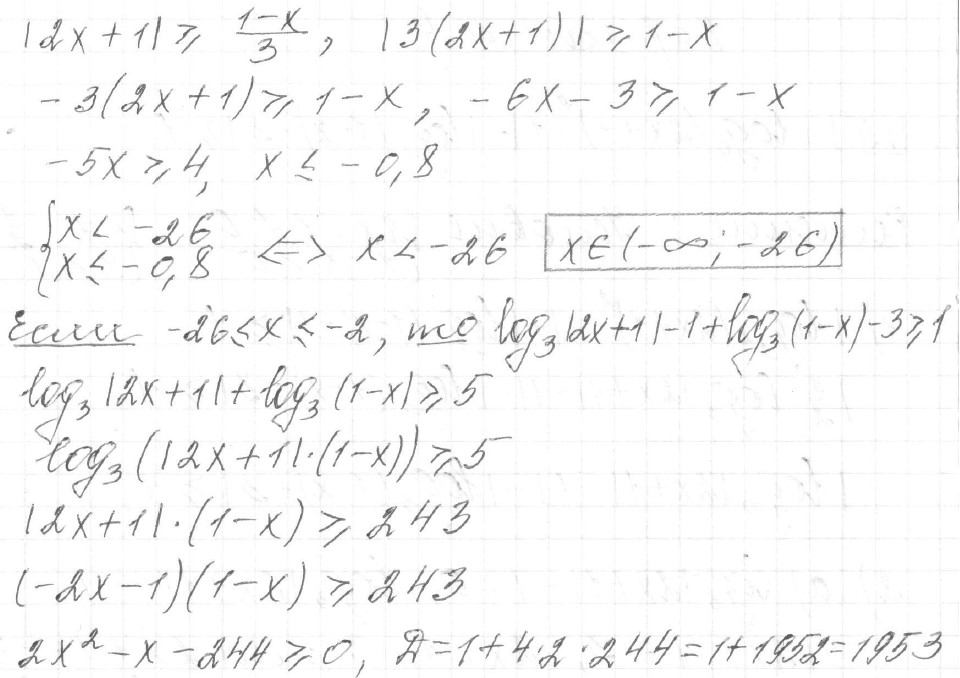 |2x+1| ≥ (1-x)/3, |3(2x+1)| ≥ 1-x
-3(2x+1) ≥ 1-x, -6x-3 ≥ 1-x
-5x ≥ 4, x ≤ -0,8
{x < -26
{x ≤ -0,8 <=> x < -26 x∈(-∞; -26)
Если -26 ≤ x ≤ -2, то log₃|2x+1|-1+log₃(1-x)-3 ≥ 1
log₃|2x+1|+log₃(1-x) ≥ 5
log₃(|2x+1|·(1-x)) ≥ 5
|2x+1|·(1-x) ≥ 243
(-2x-1)(1-x) ≥ 243
2x²-x-244 ≥ 0, Д=1+4·2·244=1+1952=1953